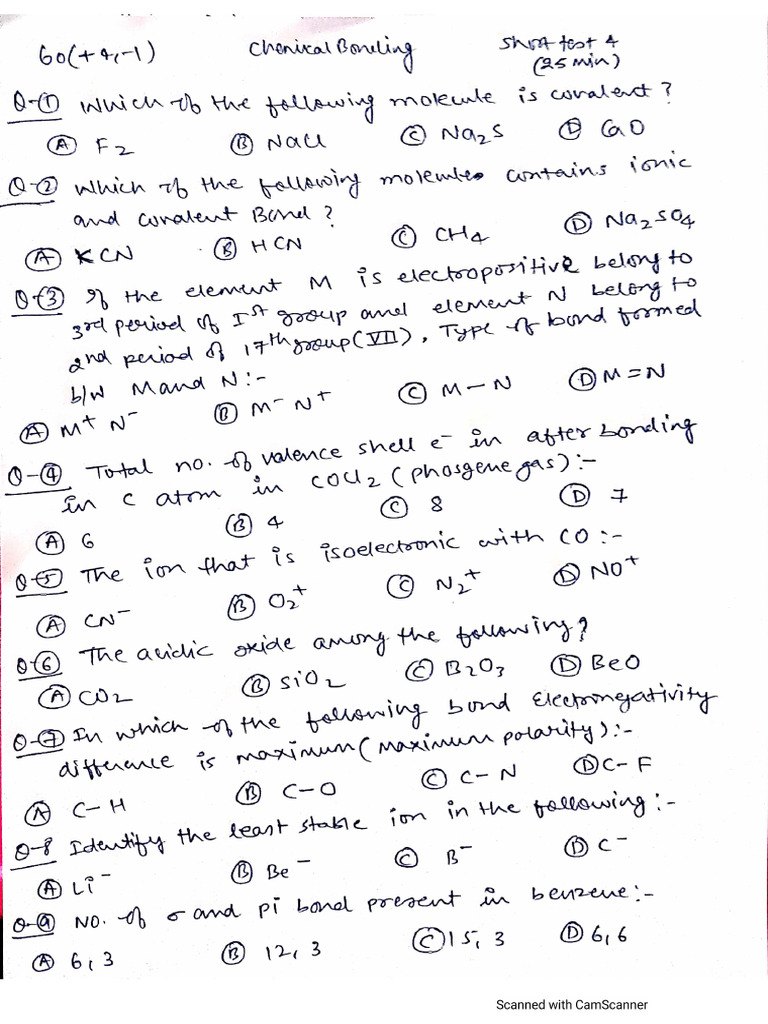 60(+4,-1) Chemical Bonding Short test 4
(25 min)
Q-① Which of the following molecule is covalent?
Ⓐ F2 Ⓑ NaCl Ⓒ Na2S Ⓓ CaO
Q-② Which of the following molecules contains ionic
and covalent Bond?
Ⓐ KCN Ⓑ HCN Ⓒ CH4 Ⓓ Na2SO4
Q-③ If the element M is electropositive belong to
3rd period of Ist group and element N belong to
2nd period of 17th group(VII), Type of bond formed
b/w M and N:-
Ⓐ M+ N- Ⓑ M- N+ Ⓒ M-N Ⓓ M=N
Q-④ Total no. of valence shell e- in after bonding
in C atom in COCl2 (phosgene gas):-
Ⓐ 6 Ⓑ 4 Ⓒ 8 Ⓓ 7
Q-⑤ The ion that is isoelectronic with CO:-
Ⓐ CN- Ⓑ O2+ Ⓒ N2+ Ⓓ NO+
Q-⑥ The acidic oxide among the following?
Ⓐ CO2 Ⓑ SiO2 Ⓒ B2O3 Ⓓ BeO
Q-⑦ In which of the following bond Electronegativity
difference is maximum (maximum polarity):-
Ⓐ C-H Ⓑ C-O Ⓒ C-N Ⓓ C-F
Q-8 Identify the least stable ion in the following:-
Ⓐ Li- Ⓑ Be- Ⓒ B- Ⓓ C-
Q-⑨ No. of σ and pi bond present in benzene:-
Ⓐ 6,3 Ⓑ 12,3 Ⓒ 15,3 Ⓓ 6,6
Scanned with CamScanner